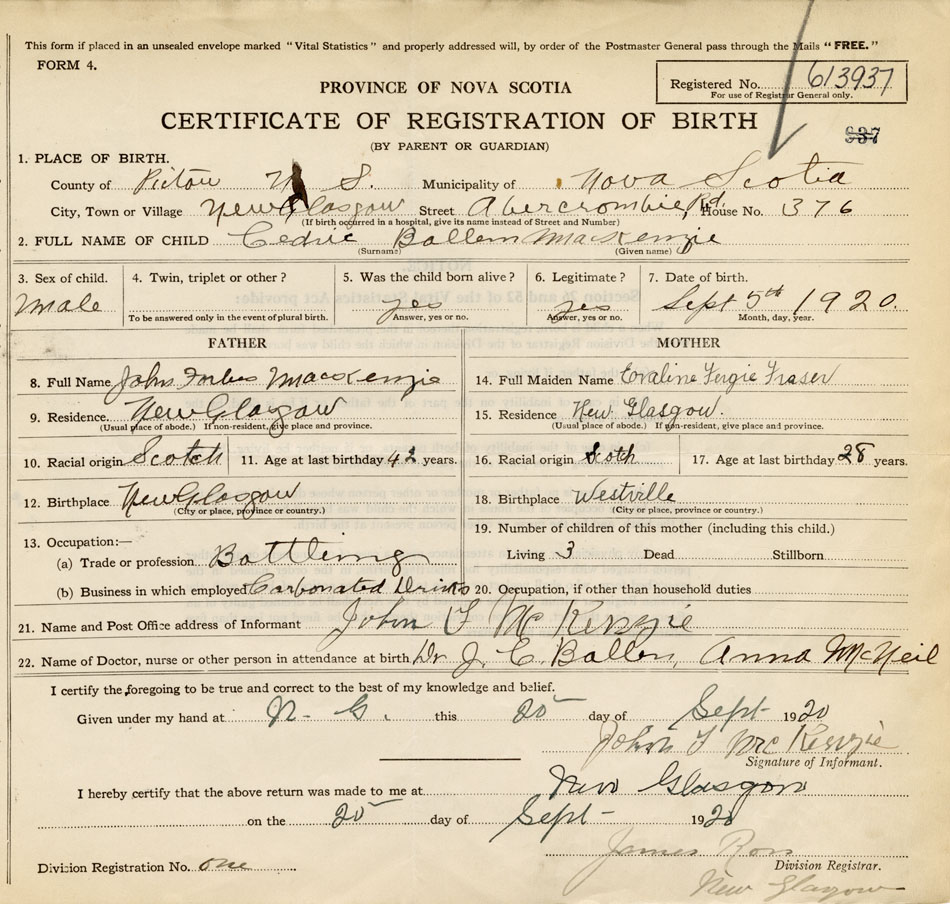 This form if placed in an unsealed envelope marked "Vital Statistics" and properly addressed will, by order of the Postmaster General pass through the Mails "FREE."
FORM 4.
Registered No. 613937
For use of Registrar General only.
PROVINCE OF NOVA SCOTIA
CERTIFICATE OF REGISTRATION OF BIRTH
(BY PARENT OR GUARDIAN)
937
1. PLACE OF BIRTH.
County of Pictou N S. Municipality of Nova Scotia
City, Town or Village New Glasgow Street Abercrombie Rd. House No. 376
(If birth occurred in a hospital, give its name instead of Street and Number)
2. FULL NAME OF CHILD Cedric Ballem MacKenzie
(Surname) (Given name)
3. Sex of child. 4. Twin, triplet or other? 5. Was the child born alive? 6. Legitimate? 7. Date of birth.
Male yes yes Sept 5th 1920.
To be answered only in the event of plural birth. Answer, yes or no. Answer, yes or no. Month, day, year.
FATHER
8. Full Name John Forbes MacKenzie
9. Residence New Glasgow
(Usual place of abode.) If non-resident, give place and province.
10. Racial origin Scotch 11. Age at last birthday 42 years.
12. Birthplace New Glasgow
(City or place, province or country.)
13. Occupation:—
(a) Trade or profession Bottling
(b) Business in which employed Carbonated Drinks
MOTHER
14. Full Maiden Name Evaline Fergie Fraser
15. Residence New Glasgow.
(Usual place of abode.) If non-resident, give place and province.
16. Racial origin Scoth 17. Age at last birthday 28 years.
18. Birthplace Westville
(City or place, province or country.)
19. Number of children of this mother (including this child.)
Living 3 Dead Stillborn
20. Occupation, if other than household duties
21. Name and Post Office address of Informant John F McKenzie
22. Name of Doctor, nurse or other person in attendance at birth Dr J. C. Ballem, Anna McNeil
I certify the foregoing to be true and correct to the best of my knowledge and belief.
Given under my hand at N- G. this 25 day of Sept 1920
John F McKenzie
Signature of Informant.
I hereby certify that the above return was made to me at New Glasgow
on the 25 day of Sept- 1920
James Ross
Division Registration No. one Division Registrar.
New Glasgow